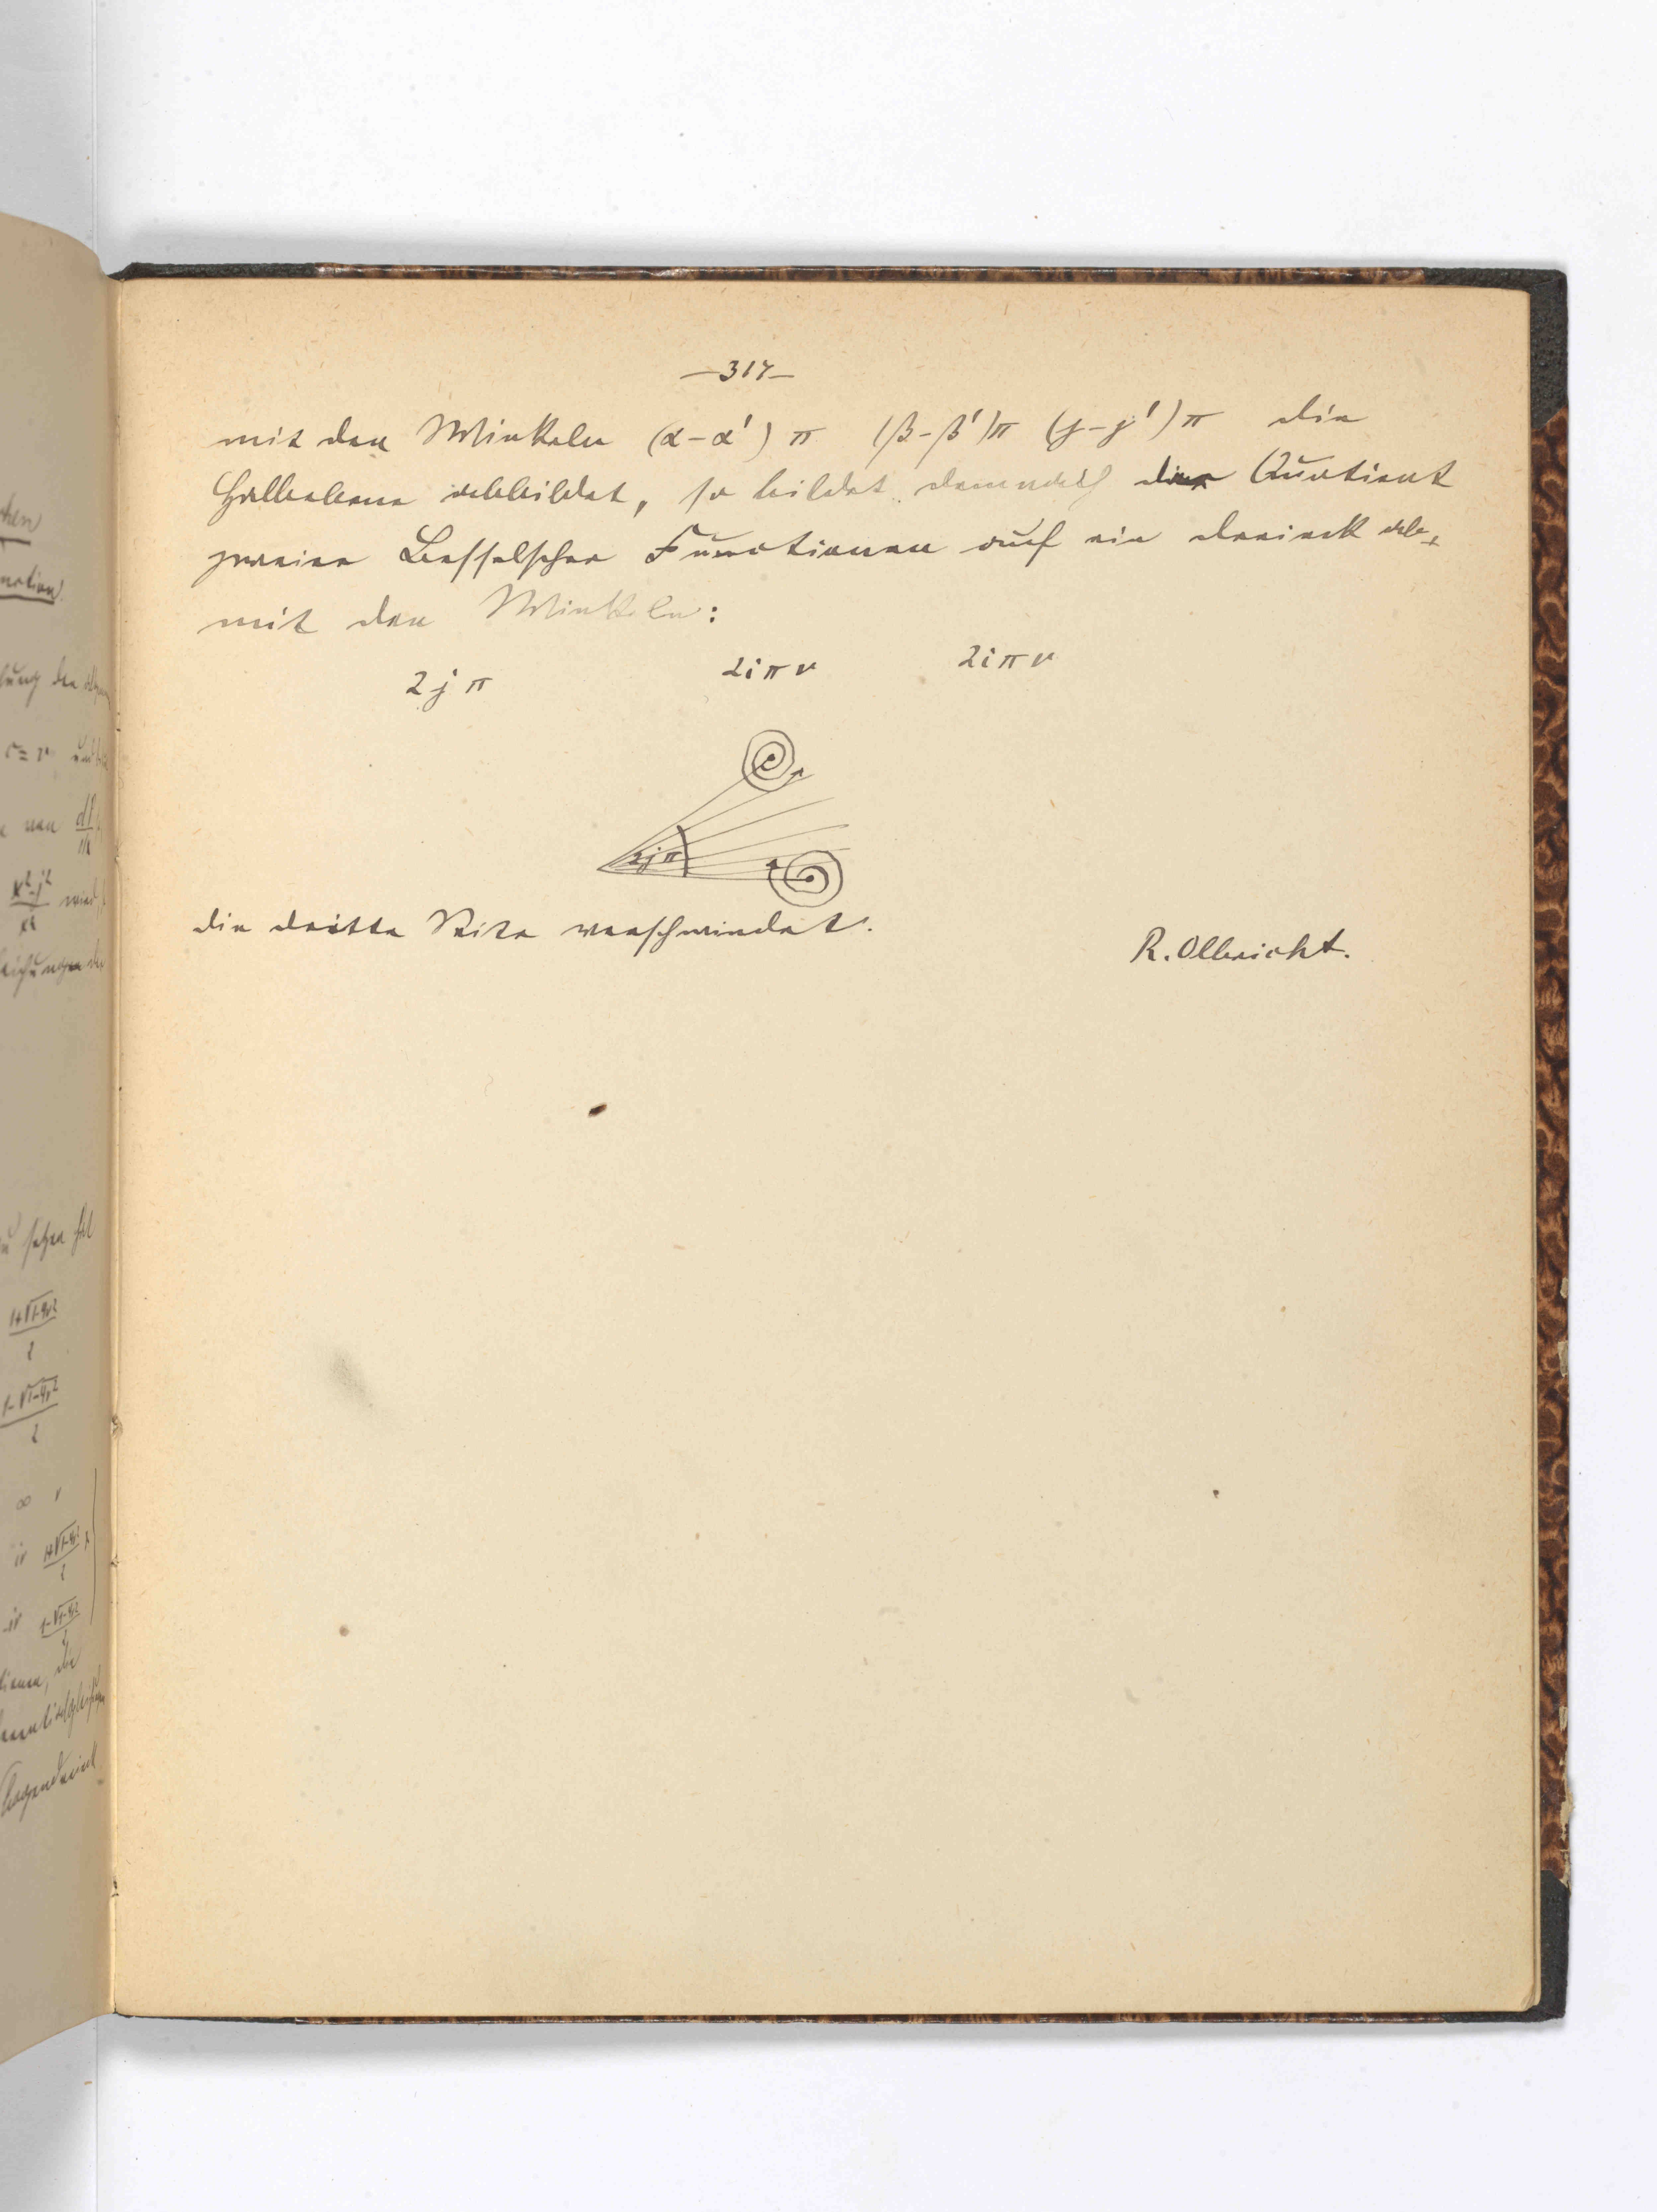 —317—
mit den Winkeln (α-α')π (β-β')π (γ-γ')π die
Halbebene abbildet, so bildet demnach der Quotient
zweier Besselscher Functionen auf ein dreieck ab,
mit den Winkeln:
2jπ 2iπν 2iπν
2jπ
die dritte Seite verschwindet.
R. Olbricht.